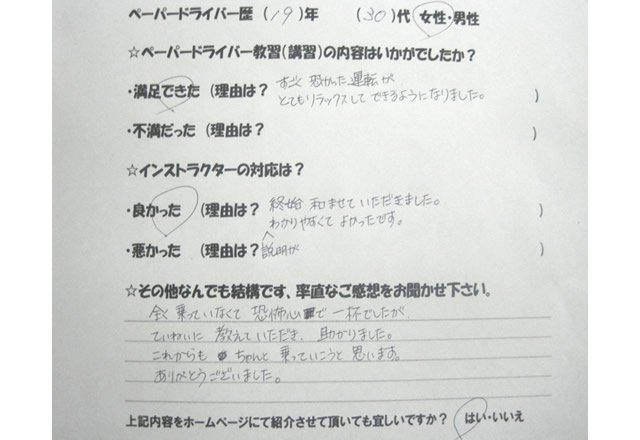 ペーパードライバー歴（19）年　（30）代　女性・男性
☆ペーパードライバー教習（講習）の内容はいかがでしたか？
・満足できた（理由は？ すごく恐かった運転が
とてもリラックスしてできるようになりました。 ）
・不満だった（理由は？ ）
☆インストラクターの対応は？
・良かった（理由は？ 終始 和ませていただきました。
わかりやなくてよかったです。 ）
・悪かった（理由は？ 説明が ）
☆その他なんでも結構です、率直なご感想をお聞かせ下さい。
全く乗っていなくて恐怖心で一杯でしたが
ていねいに教えていただき、助かりました。
これからもちゃんと乗っていこうと思います。
ありがとうございました。
上記内容をホームページにて紹介させて頂いても宜しいですか？ はい・いいえ